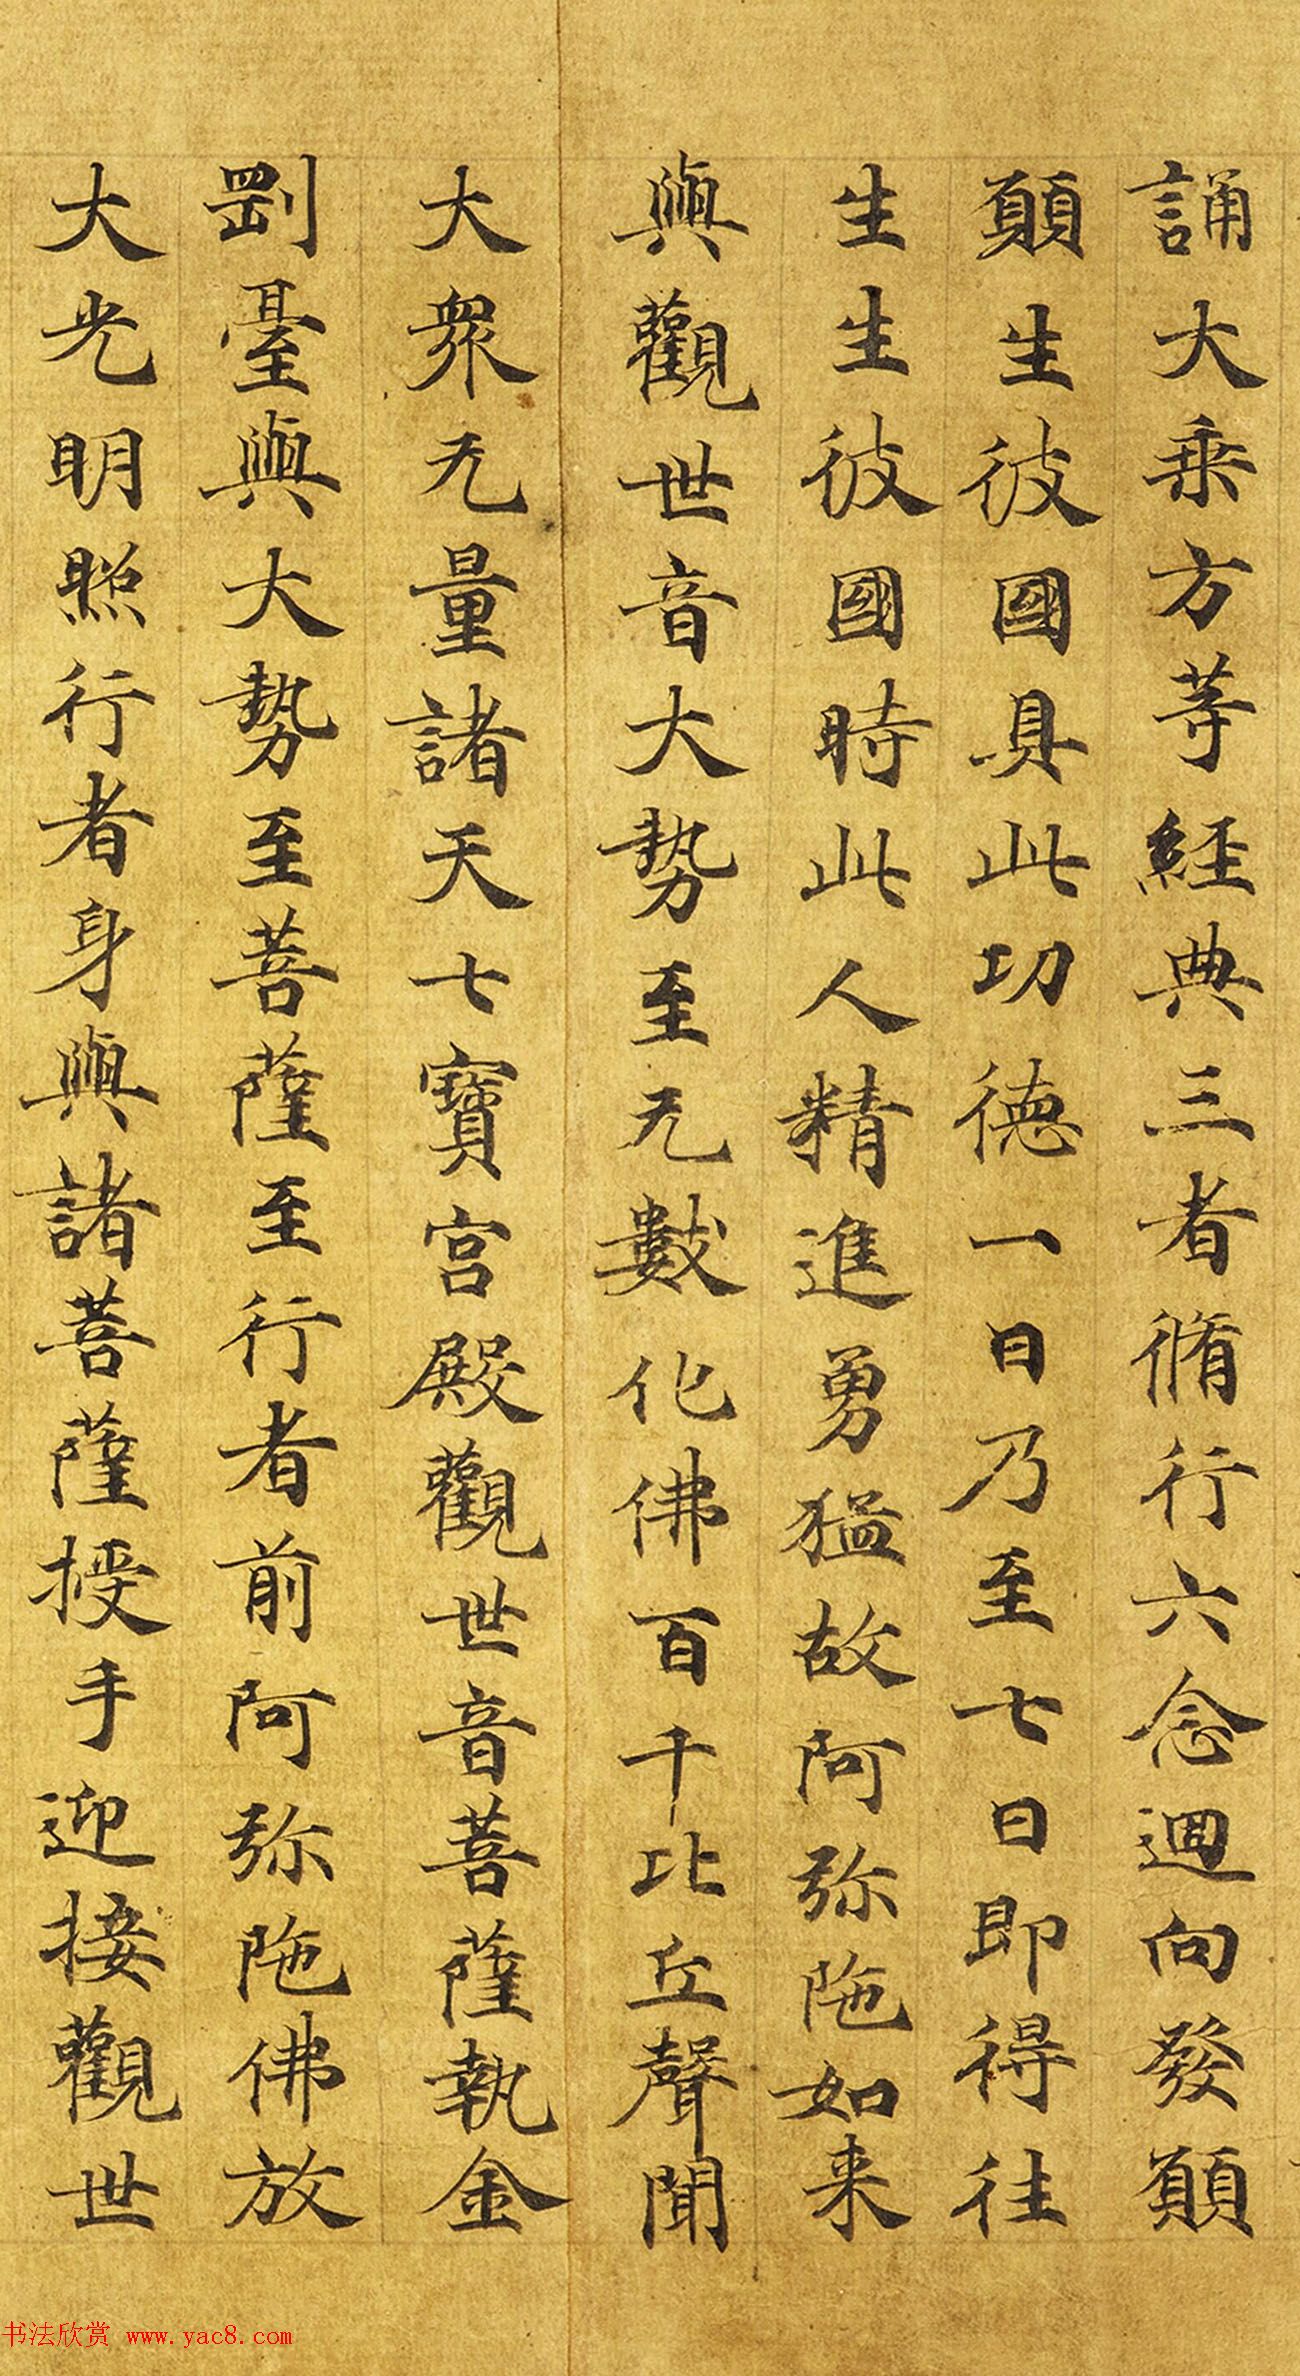 誦大乗方等經典三者脩行六念迴向發願
願生彼國具此功徳一日乃至七日即得往
生生彼國時此人精進勇猛故阿弥陁如来
與觀世音大勢至无數化佛百千比丘聲聞
大眾无量諸天七寶宮殿觀世音菩薩執金
剛臺與大勢至菩薩至行者前阿弥陁佛放
大光明照行者身與諸菩薩授手迎接觀世
书法欣赏 www.yac8.com